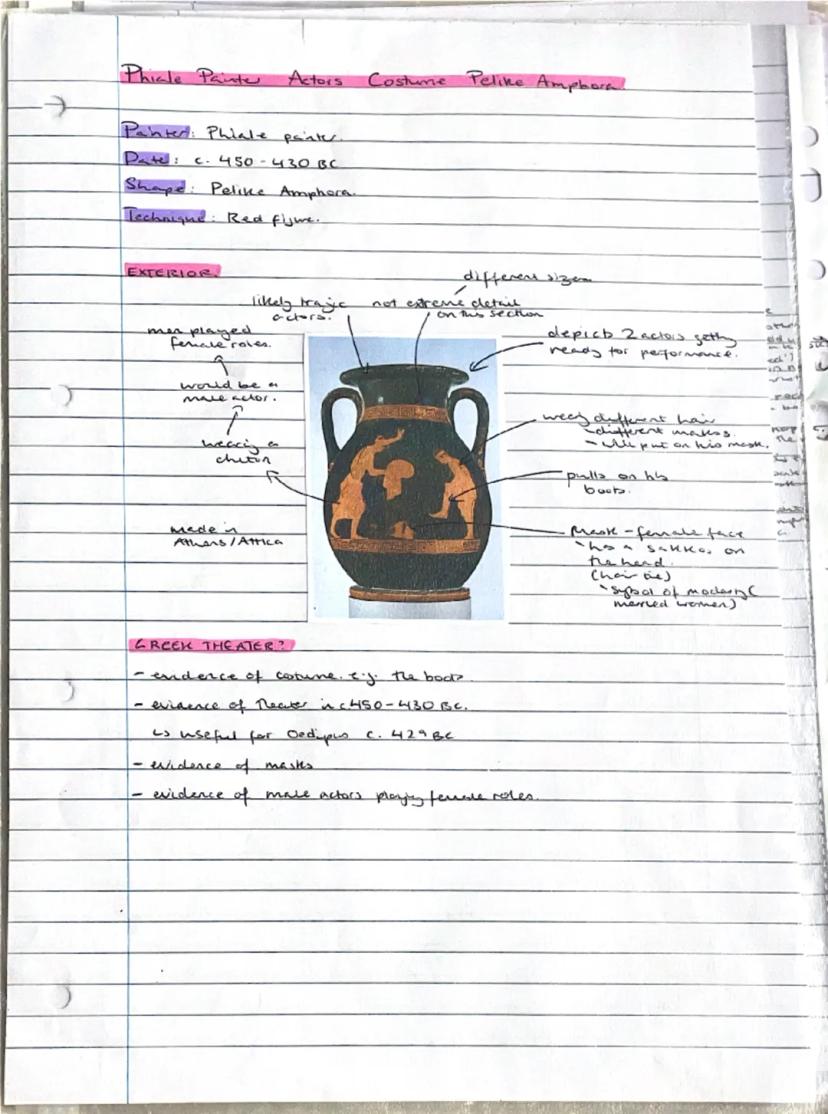 Phiale Painter Actors Costume Pelike Amphora.
Painter: Phiale painter.
Date: c. 450-430 BC
Shape: Pelike Amphora.
Technique: Red figure.
EXTERIOR.
different sizes
likely tragic
actors.
not extreme detail
on this section
men played
female roles.
would be a
male actor.
wearing a
chiton
made in
Athens/Attica
depicts 2 actors getting
ready for performance.
different hair
- different masks.
- will put on his mask.
pulls on his
boots.
Mask - female face
- has a sakkos on
the head.
(hair tie)
(married women)
GREEK THEATER?
- evidence of costume. e.g. the boots
- evidence of theater in c450-430 BC.
↳ useful for Oedipus c. 429 BC
- evidence of masks
- evidence of male actors playing female roles.